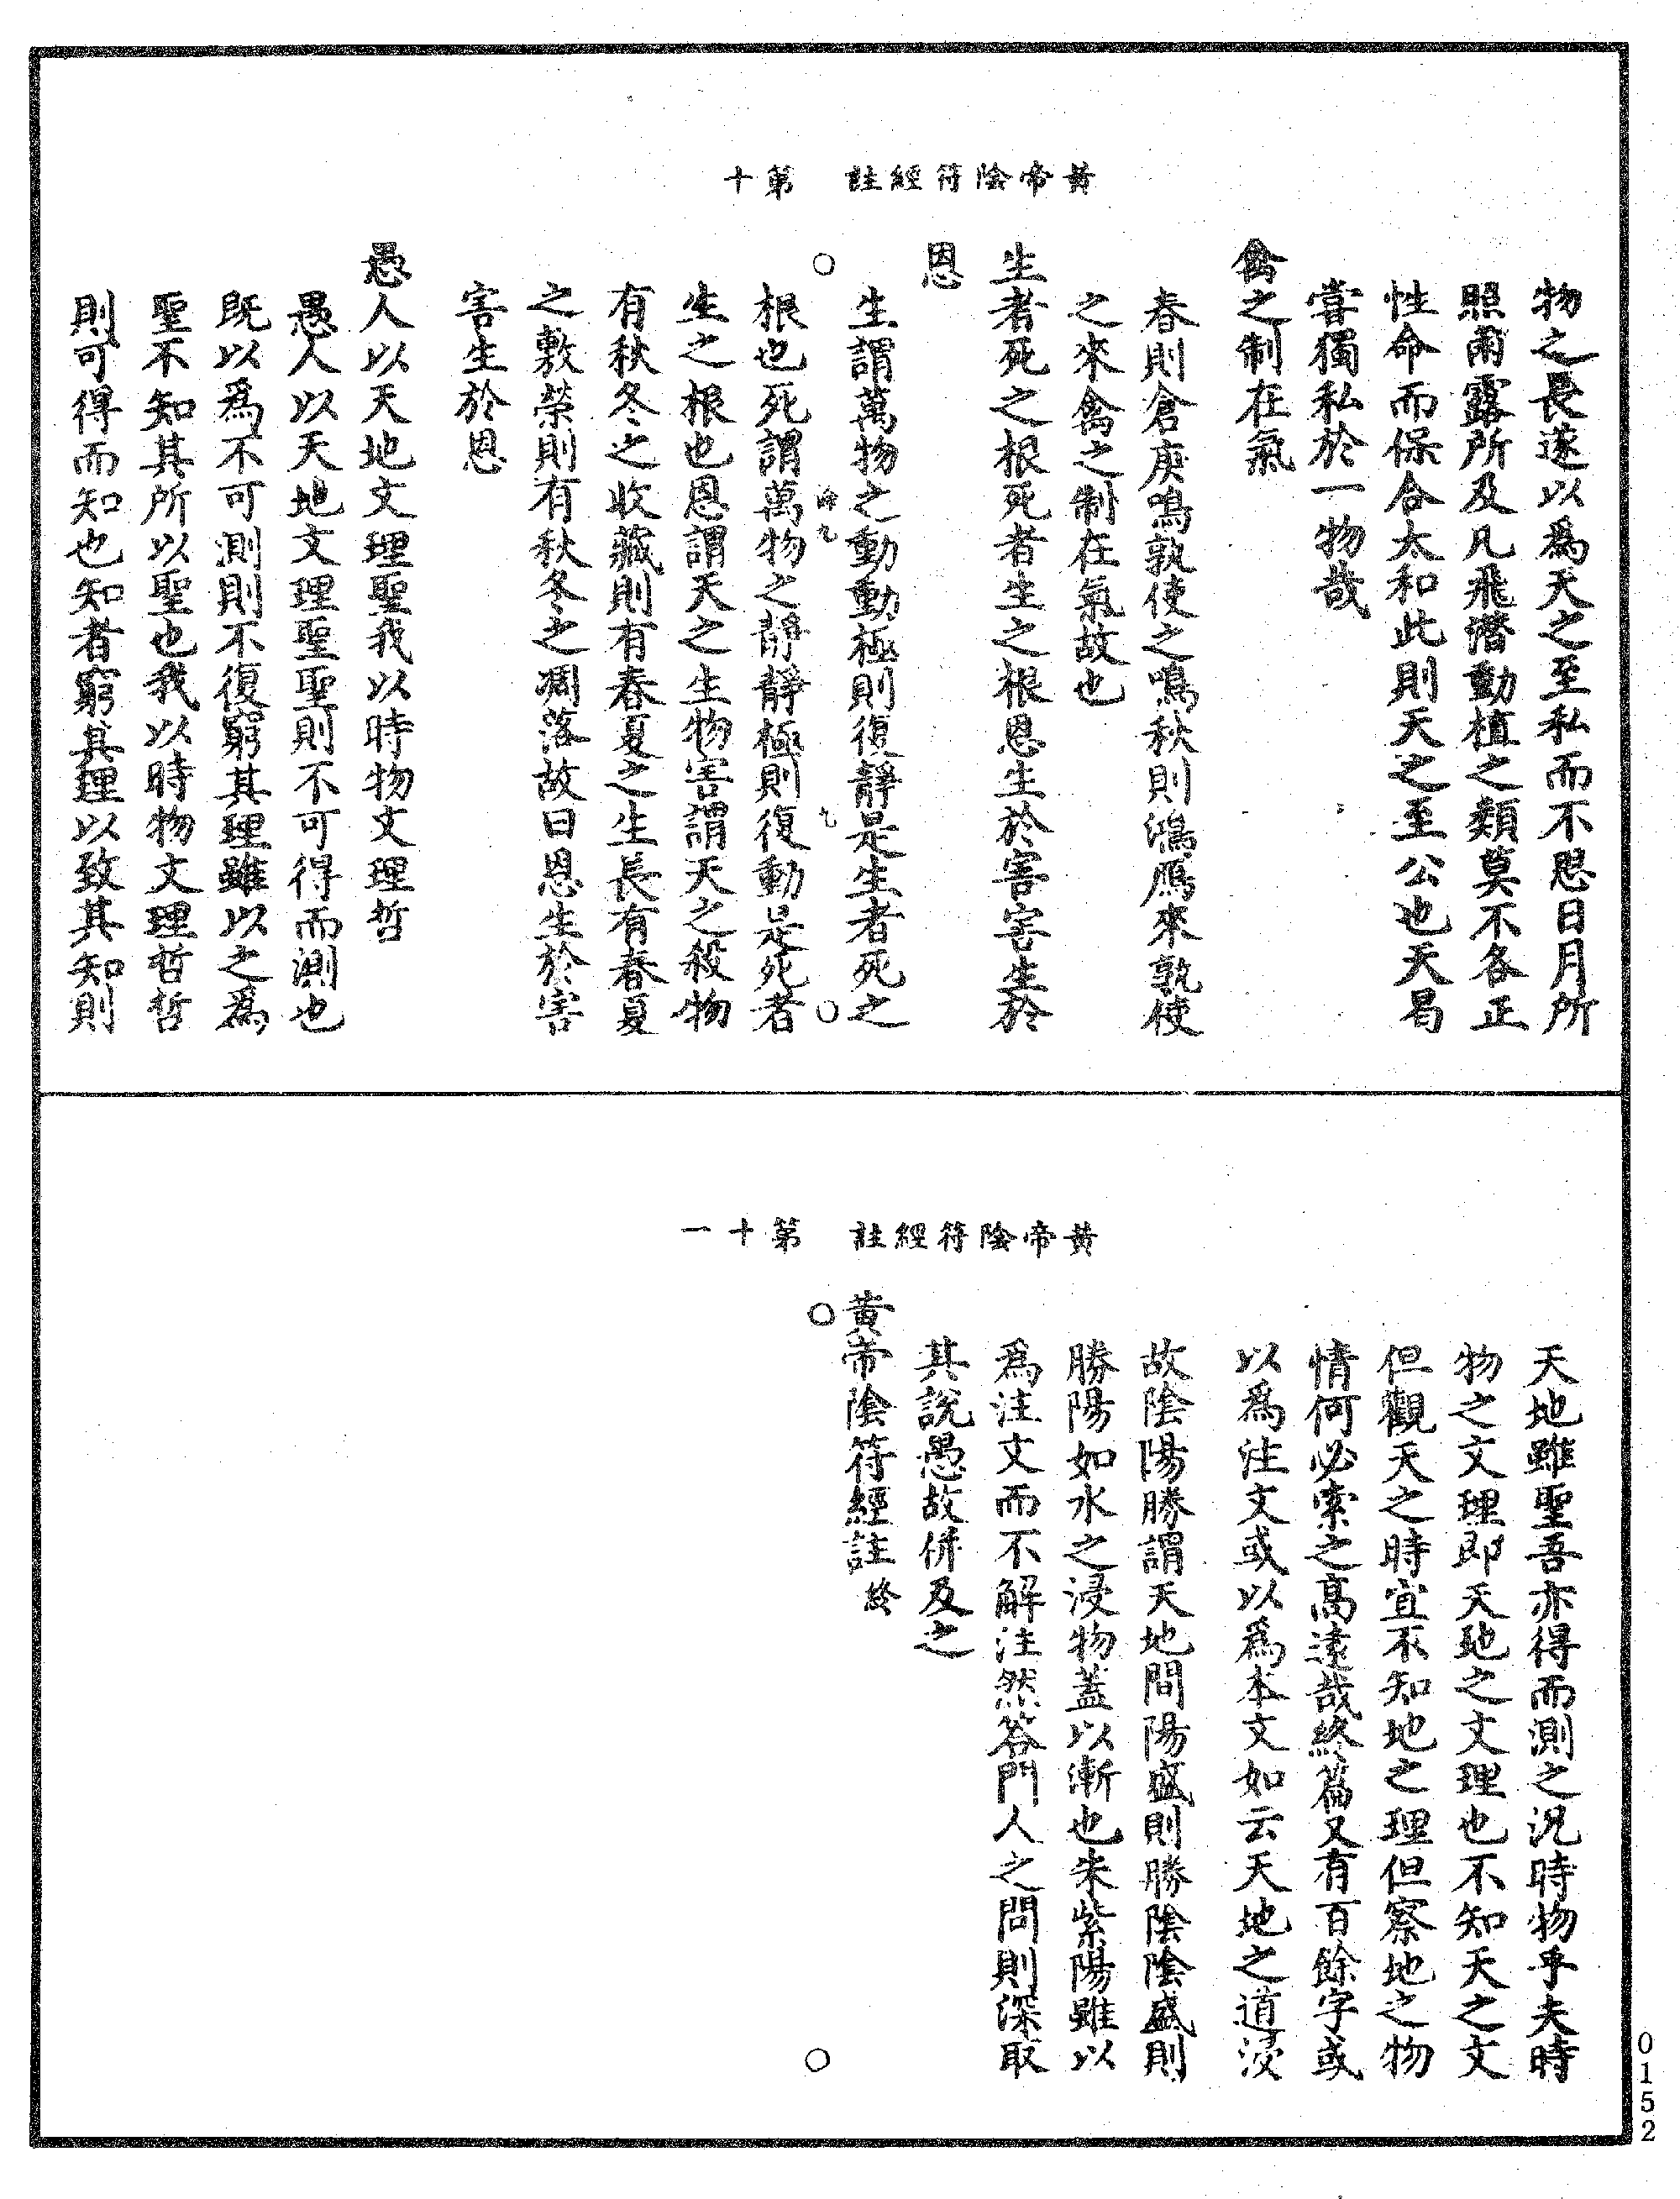 黃帝陰符經註　第十
物之長遂以爲天之至私而不思日月所
照雨露所及凡飛潛動植之類莫不各正
性命而保合太和此則天之至公也天曷
嘗獨私於一物哉
禽之制在氣
春則倉庚鳴孰使之鳴秋則鴻鴈來孰使
之來禽之制在氣故也
生者死之根死者生之根恩生於害害生於
恩
生謂萬物之動動極則復靜是生者死之
根也死謂萬物之靜靜極則復動是死者
生之根也恩謂天之生物害謂天之殺物
有秋冬之收藏則有春夏之生長有春夏
之敷榮則有秋冬之凋落故曰恩生於害
害生於恩
愚人以天地文理聖我以時物文理哲
愚人以天地文理聖聖則不可得而測也
既以爲不可測則不復窮其理雖以之爲
聖不知其所以聖也我以時物文理哲哲
則可得而知也知者窮其理以致其知則
黃帝陰符經註　第十一
天地雖聖吾亦得而測之況時物乎夫時
物之文理即天地之文理也不知天之文
但觀天之時宜不知地之理但察地之物
情何必索之高遠哉終篇又有百餘字或
以爲注文或以爲本文如云天地之道浸
故陰陽勝謂天地間陽盛則勝陰陰盛則
勝陽如水之浸物蓋以漸也朱紫陽雖以
爲注文而不解注然答門人之問則深取
其說愚故併及之
黃帝陰符經註終
0152